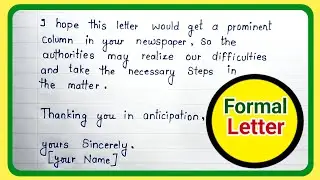 I hope this letter would get a prominent
column in your newspaper, so the
authorities may realize our difficulties
and take the necessary steps in
the matter.
Thanking you in anticipation,
yours Sincerely.
[your Name]
Formal
Letter